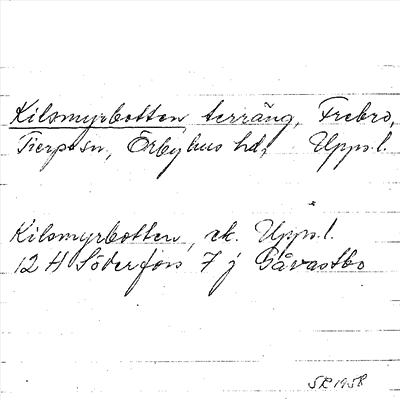 Kilsmyrbotten terräng, Frebro,
Tierps sn, Örbyhus hd, Upps.l.
Kilsmyrbotten, ek. Upps.l.
12 H Söderfors 7 j Gåvastbo
SR 1958